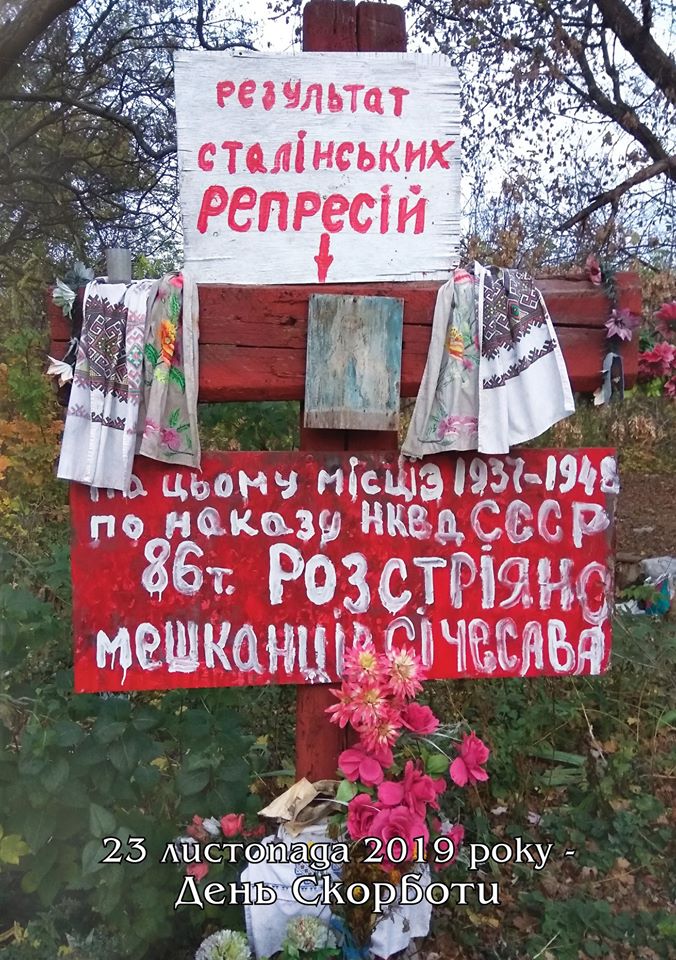 результат
сталінських
репресій
на цьому місці з 1937-1948
по наказу НКВД СССР
86т. РОЗСТРІЯНО
мешканців Січесава
23 листопада 2019 року -
День Скорботи